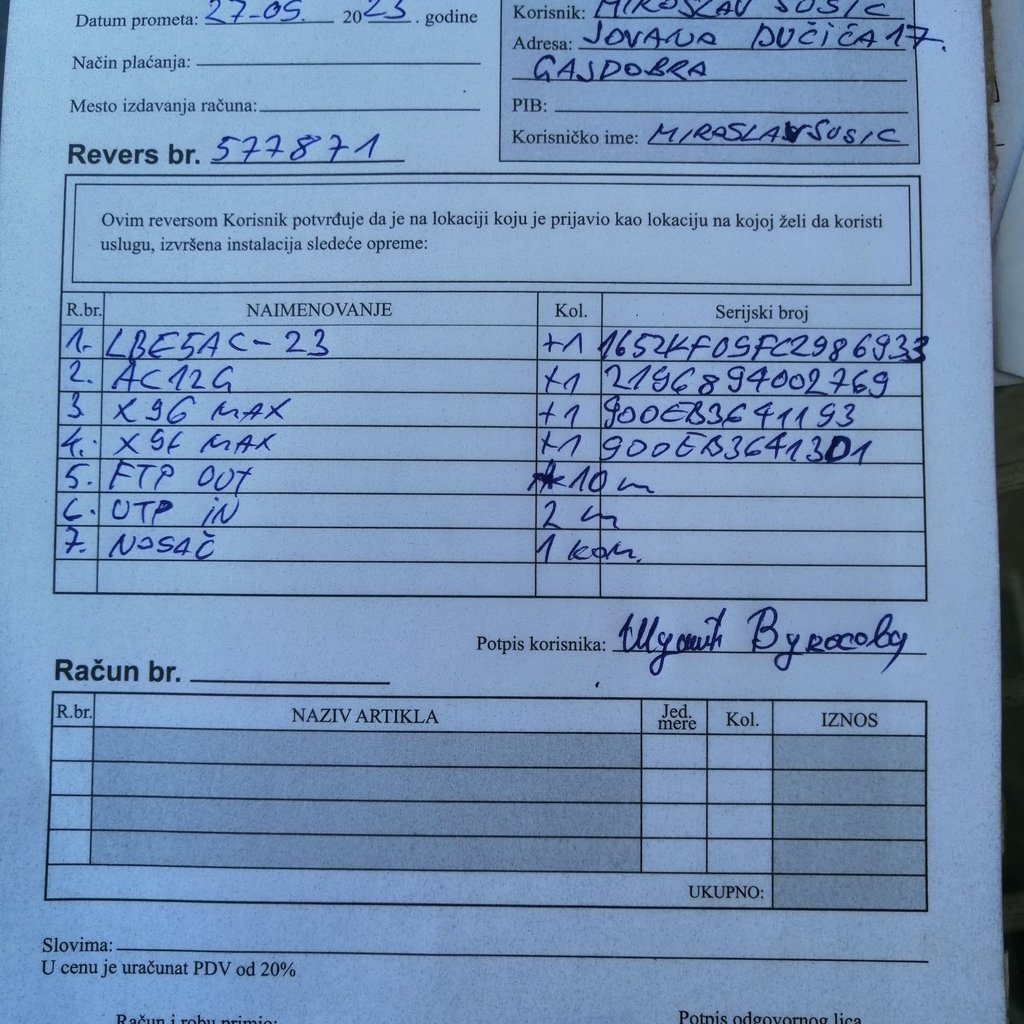 Datum prometa: 27-05. 2023. godine
Korisnik: MIROSLAV ŠUŠIĆ
Adresa: JOVANA DUČIĆA 17.
GAJDOBRA
Način plaćanja:
Mesto izdavanja računa:
PIB:
Korisničko ime: MIRASLAVSUSIC
Revers br. 577871
Ovim reversom Korisnik potvrđuje da je na lokaciji koju je prijavio kao lokaciju na kojoj želi da koristi
uslugu, izvršena instalacija sledeće opreme:
R.br. NAIMENOVANJE Kol. Serijski broj
1. LBE5AC-23 +1 1652KF09FC2986933
2. AC12G +1 2196894002769
3 X96 MAX +1 900EB3641193
4. X96 MAX +1 900EB3641301
5. FTP OUT 10 m
6. UTP IN 2 m
7. NOSAČ 1 kom.
Potpis korisnika:
Račun br.
R.br. NAZIV ARTIKLA Jed. mere Kol. IZNOS
UKUPNO:
Slovima:
U cenu je uračunat PDV od 20%
Račun i robu primio:
Potpis odgovornog lica